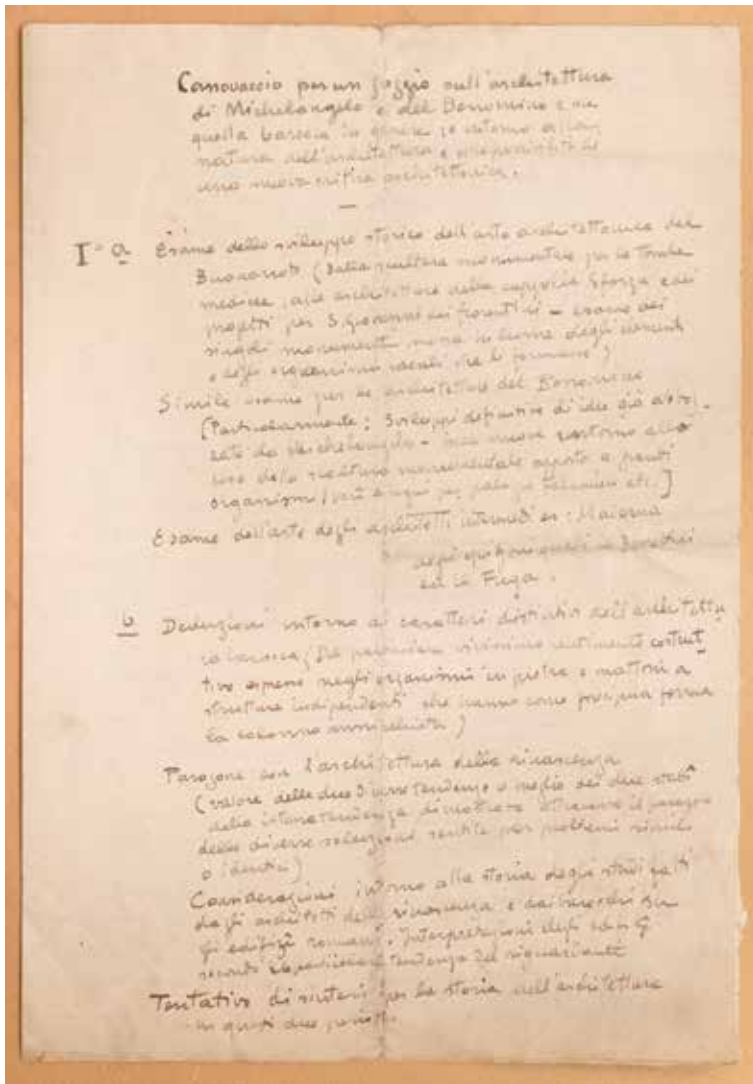 Canovaccio per un saggio sull'architettura
di Michelangelo e del Borromino e su
quella barocca in genere intorno alla
natura dell'architettura e possibilità di
una nuova critica architettonica.
—
I° a Esame dello sviluppo storico dell'arte architettonica del
Buonarroti (Dalla scultura monumentale per le tombe
medicee alle architetture della cappella Sforza e dei
progetti per S. Giovanni dei fiorentini – esame dei
singoli monumenti in lume degli elementi
e degli organismi ideali che li formano)
Simile esame per le architetture del Borromino
(Particolarmente: Sviluppi definitivi di idee già
da Michelangelo – intorno alla
della scultura monumentale
organismi etc.]
Esame dell'arte degli architetti intermedi es: Maderna
ed il Fuga.
b Deduzioni intorno ai caratteri distintivi dell'architettu
ra barocca, (In particolare vivissimo sentimento costrut
tivo espresso negli organismi in pietra e mattoni a
strutture indipendenti che hanno come forma
la colonna)
Paragone con l'architettura della rinascenza
(valore delle due diverse tendenze o meglio dei due stati
della tendenza dimostrare attraverso il paragone
delle diverse soluzioni sentite per problemi simili
o identici)
Considerazioni intorno alla storia degli studi fatti
dagli architetti della rinascenza e dai barocchi su
gli edifizi romani. Interpretazioni degli
secondo la particolare tendenza del riguardante
Tentativo di sintesi per la storia dell'architettura
in questi due periodi.